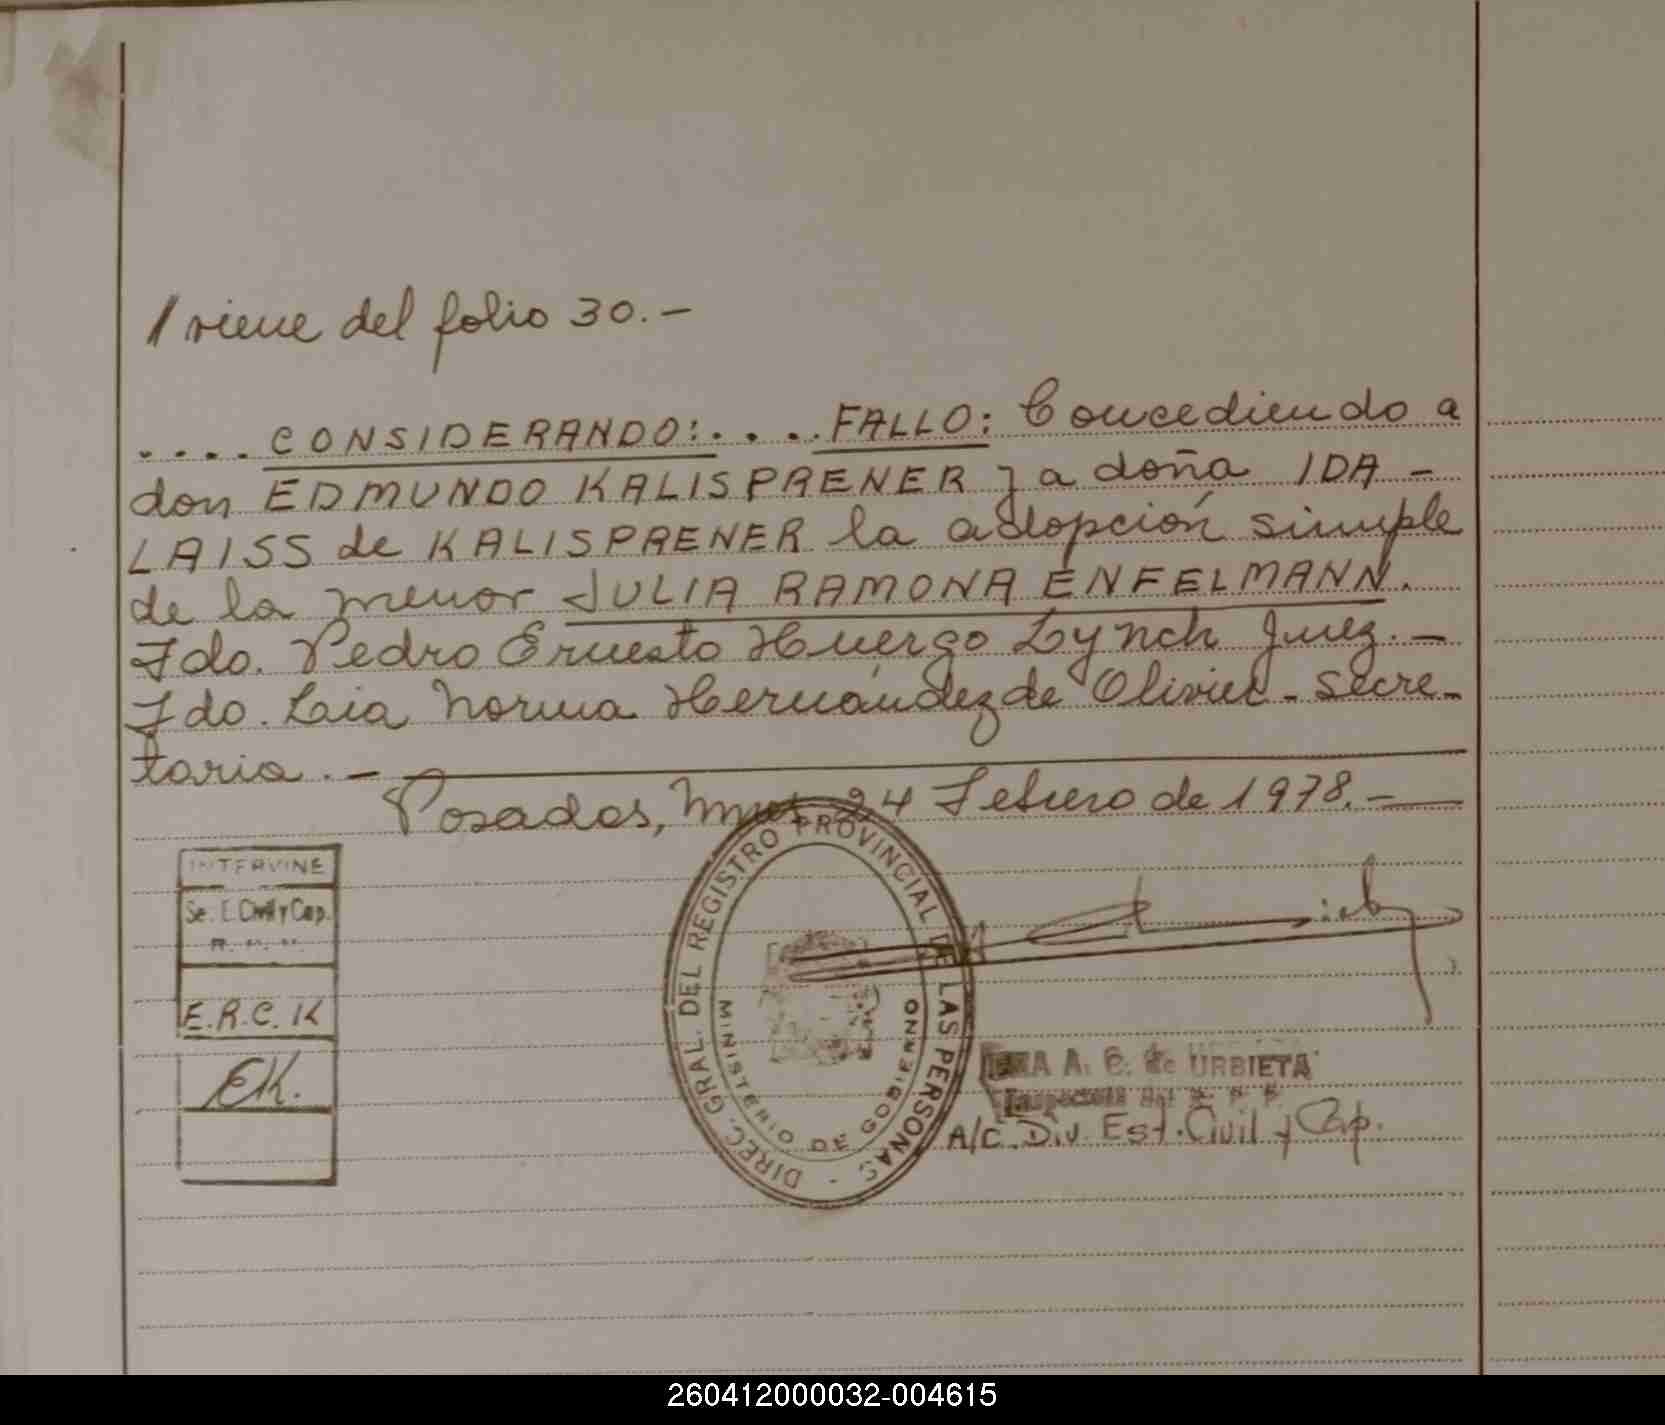 / viene del folio 30.-
.... CONSIDERANDO:.... FALLO: Concediendo a
don EDMUNDO KALISPRENER y a doña IDA -
LAISS de KALISPRENER la adopción simple
de la menor JULIA RAMONA ENFELMANN.
Fdo. Pedro Ernesto Huergo Lynch Juez.-
Fdo. Lia Norma Hernández de Olivier - Secre-
taria.-
Posadas, Mnes 24 Febrero de 1978.-
INTERVINE
Se. E. Civil y Cap.
E.R.C. K
EK.
DIREC. GRAL. DEL REGISTRO PROVINCIAL DE LAS PERSONAS -
MINISTERIO DE GOBIERNO
A. C. de URBIETA
A/C. Div. Est. Civil y Cap.
260412000032-004615